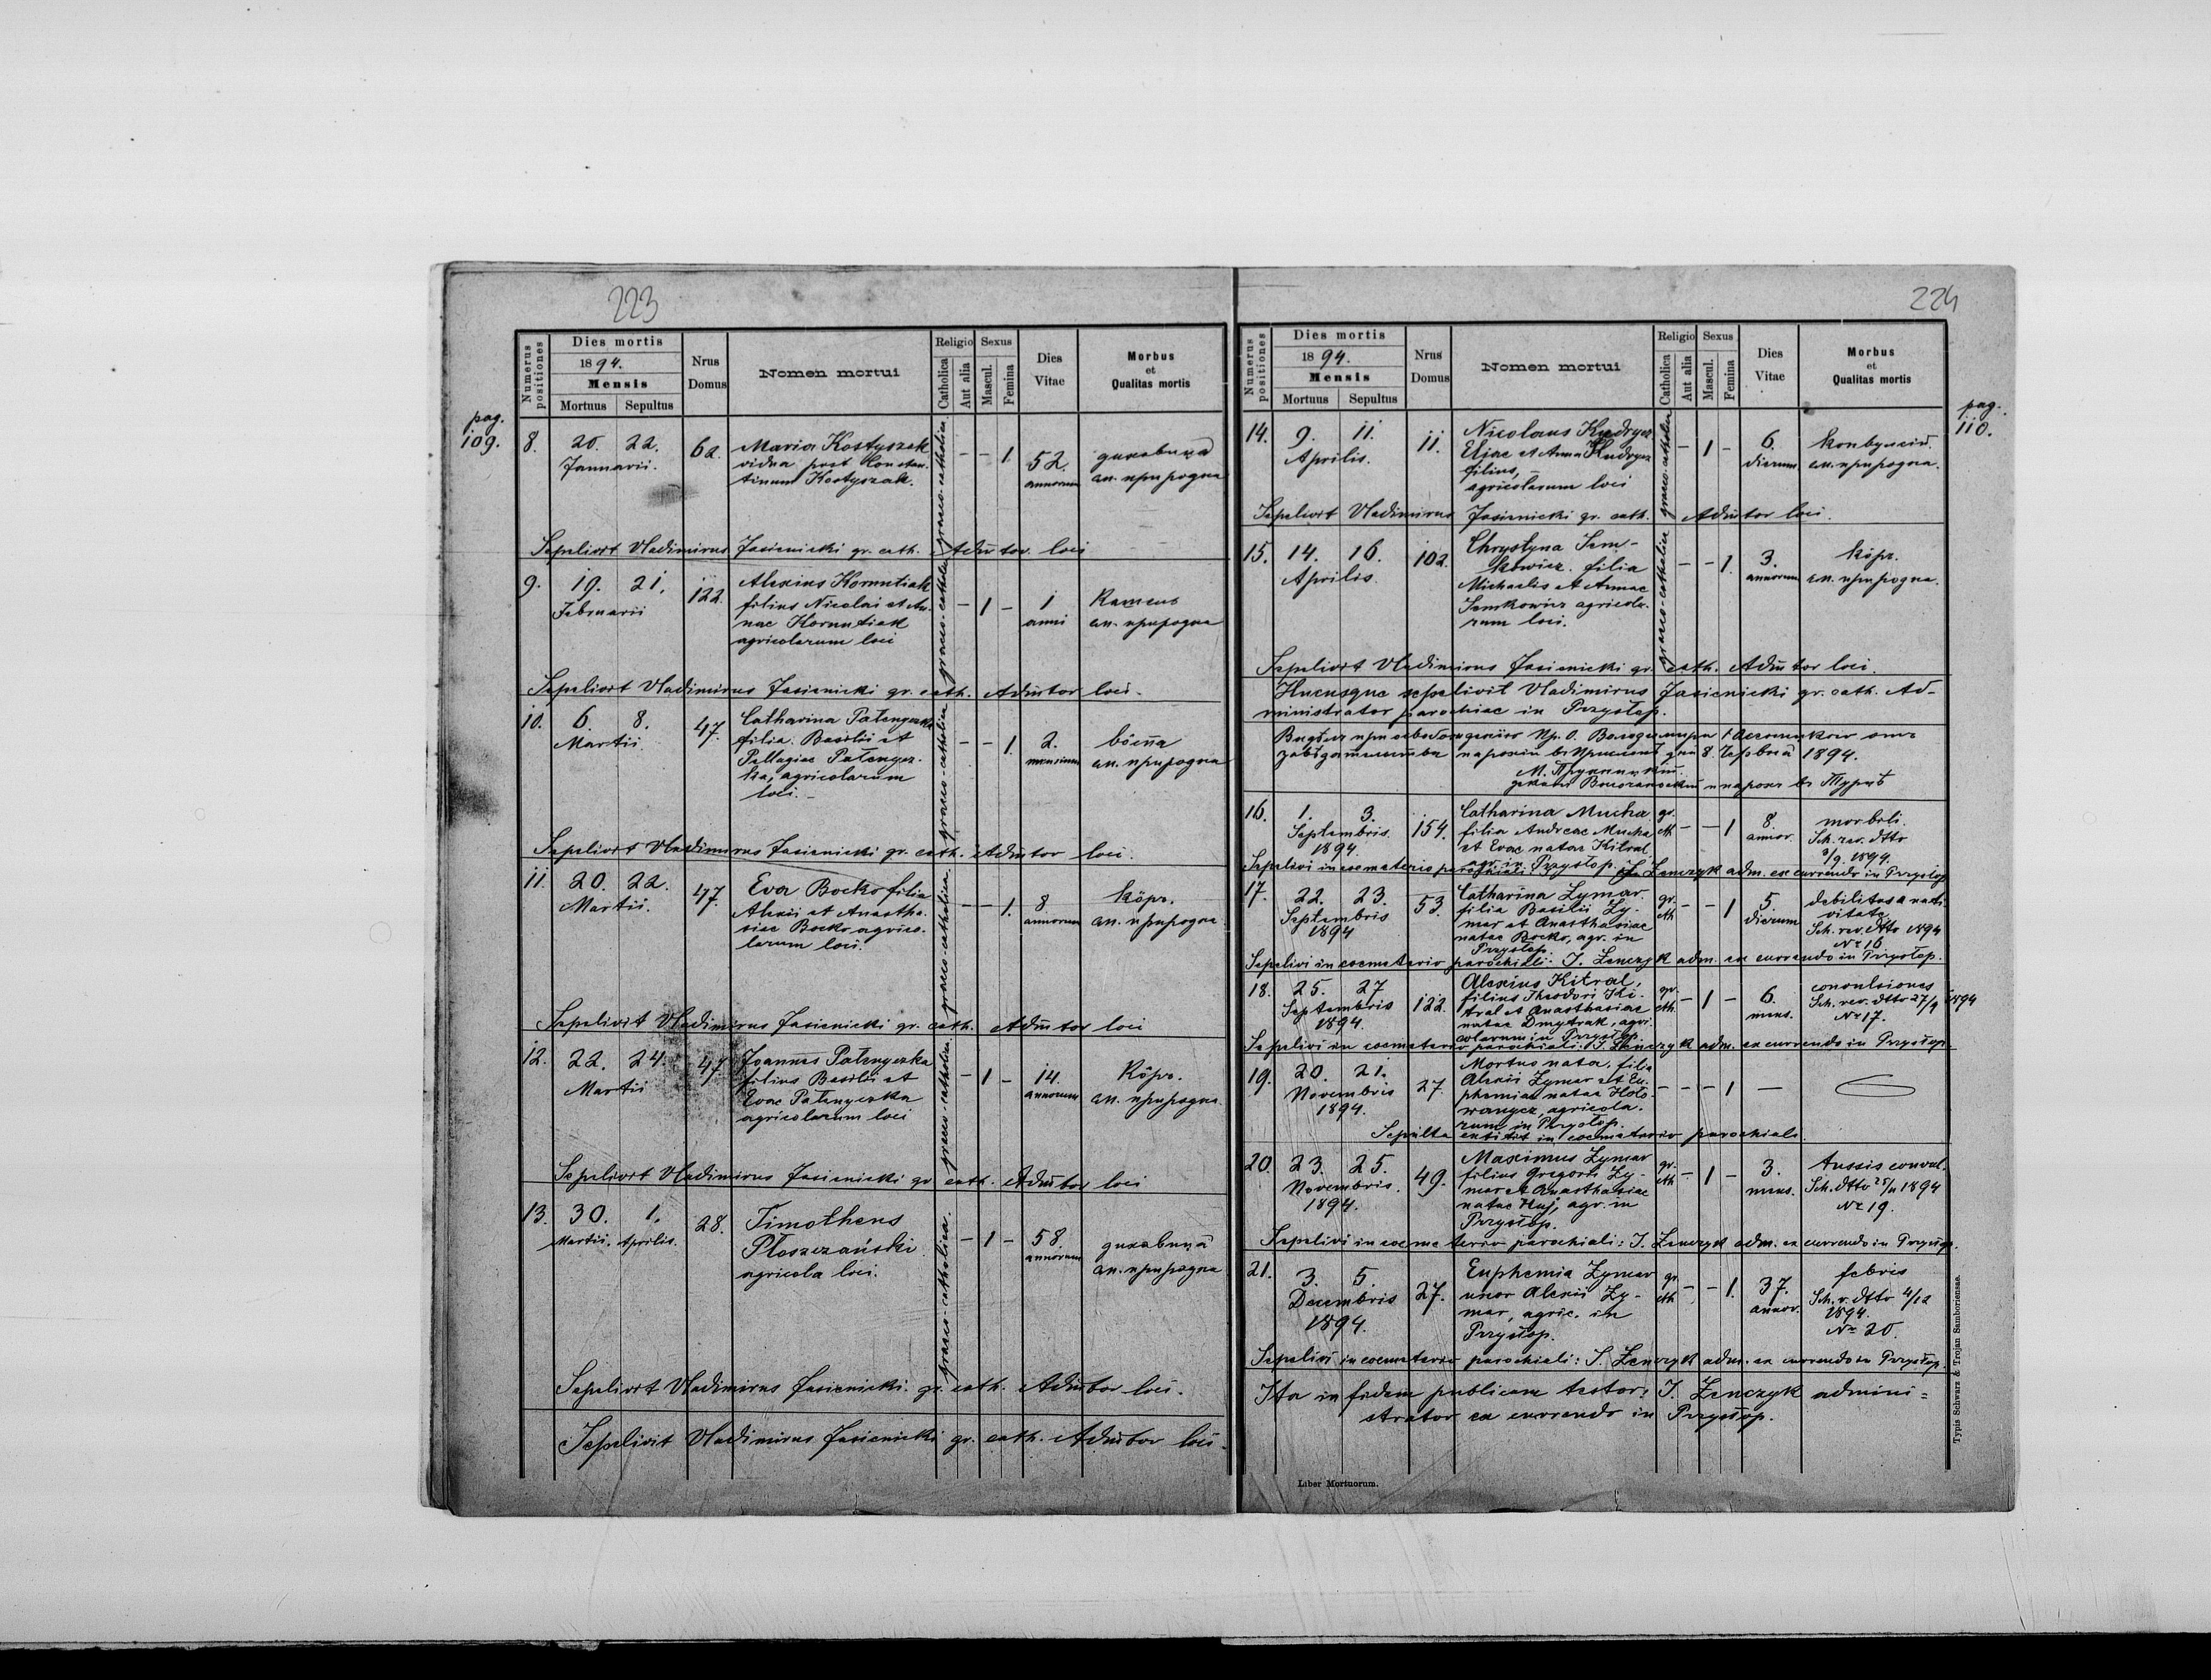 223
pag.
109.
Numerus positiones
Dies mortis
1894.
Mensis
Mortuus Sepultus
Nrus Domus
Nomen mortui
Religio
Catholica
Aut alia
Sexus
Mascul.
Femina
Dies Vitae
Morbus
et
Qualitas mortis
8. 20. 22. 62. Maria Kostyszak
Januarii. vidua post Constan-
tinum Kostyszak.
graeco-catholica
- - 1. 52.
annorum
духавица
см. природна
Sepelivit Vladimirus Jasienicki gr. cath. Adm̄tor loci
9. 19. 21. 122. Alexius Kornutiak
Februarii filius Nicolai et An-
nae Kornutiak
agricolarum loci
graeco-catholica
- 1 - 1
anni
Камень
см. природна
Sepelivit Vladimirus Jasienicki gr. cath. Adm̄tor loci.
10. 6. 8. 47. Catharina Patenyczka
Martii. filia Basilii et
Pellagiae Patenycz-
ka, agricolarum
loci. -
graeco-catholica
- - 1. 2.
mensium
см. природна
Sepelivit Vladimirus Jasienicki gr. cath. Adm̄tor loci.
11. 20. 22. 47. Eva Bocko filia
Martii. Alexii et Anastha-
siae Bocko agrico-
larum loci.
graeco-catholica
- - 1. 8
annorum
кôръ.
см. природна
Sepelivit Vladimirus Jasienicki gr. cath. Adm̄tor loci
12. 22. 24. 47 Joannes Patenyczka
Martii filius Basilii et
Evae Patenyczka
agricolarum loci
graeco-catholica
- 1 - 14.
annorum
Кôръ.
см. природна.
Sepelivit Vladimirus Jasienicki gr. cath. Adm̄tor loci
13. 30. 1. 28. Timotheus
Martii. Aprilis. Płoszczański
agricola loci.
graeco-catholica.
- 1 - 58.
annorum
духавица
см. природна
Sepelivit Vladimirus Jasienicki gr. cath. Adm̄tor loci.
Sepelivit Vladimirus Jasienicki gr. cath. Adm̄tor loci.
224
pag.
110.
Numerus positiones
Dies mortis
1894.
Mensis
Mortuus Sepultus
Nrus Domus
Nomen mortui
Religio
Catholica
Aut alia
Sexus
Mascul.
Femina
Dies Vitae
Morbus
et
Qualitas mortis
14. 9. 11. 11. Nicolaus Kudrycz
Aprilis. Eliae et Anna Kudrycz
filius,
agricolarum loci
graeco-cathol
- 1 - 6.
dierum
конвульсіи.
см. природна.
Sepelivit Vladimirus Jasienicki gr. cath. Adm̄tor loci.
15. 14. 16. 102. Chrystyna Sem-
Aprilis. kowicz. filia
Michaelis et Annae
Semkowicz agricola-
rum loci.
graeco-catholica
- - 1. 3.
annorum
кôръ.
см. природна.
Sepelivit Vladimirus Jasienicki gr. cath. Adm̄tor loci.
Hucusque sepelivit Vladimirus Jasienicki gr. cath. Ad-
ministrator parochiae in Przysłop.
1894.
16. 1. 3. 154. Catharina Mucha
Septembris. filia Andreae Mucha
1894 et Evae natae Kitral
agr. in Przysłop.
gr. cth - - 1 8.
annor.
morbili.
Sch. rev. dtto
3/9. 1894.
Sepelivi in coemeterio parochiali J. Lenczyk adm. ex currendo in Przysłop
17. 22. 23. 53. Catharina Zymar
Septembris filia Basilii Zy-
1894 mar et Anasthasiae
natae Bocko, agr. in
Przysłop.
gr. cth - - 1 5.
dierum
debilitas a nati-
vitate
Sch. rev. dtto 1894
Nr 16
Sepelivi in coemeterio parochiali: J. Lenczyk adm. ex currendo in Przysłop.
18. 25. 27 122. Alexius Kitral,
Septembris filius Theodori Ki-
1894. tral et Anasthasiae
natae Dmytrak, agri-
colarum in Przysłop.
gr. cth. - 1 - 6.
mens.
convulsiones
Sch. rev. dtto 27/9 1894
Nr 17.
Sepelivi in coemeterio parochiali: J. Lenczyk adm. ex currendo in Przysłop
19. 20. 21. 27. Mortuo nata, filia
Novembris Alexii Zymar et Eu-
1894. phemiae natae Hoło-
wczycz, agricola-
rum in Przysłop.
- - - 1 -
Sepulta extitit in coemeterio parochiali.
20. 23. 25. 49. Maximus Zymar
Novembris. filius Gregorii Zy-
1894. mar et Anasthasiae
natae Huj, agr. in
Przysłop.
gr. cth - 1 - 3.
mens.
tussis convul.
Sch. dtto 25/11 1894
Nr 19.
Sepelivi in coemeterio parochiali: J. Lenczyk adm. ex currendo in Przysłop.
21. 3. 5. 27. Euphemia Zymar
Decembris uxor Alexii Zy-
1894. mar, agric. in
Przysłop.
gr. cth - - 1. 37.
annor.
febris
Sch. r. dtto 4/12
1894.
Nr 20.
Sepelivi in coemeterio parochiali: J. Lenczyk adm. ex currendo in Przysłop.
Ita in fidem publicam testor: J. Lenczyk admini=
strator ex currendo in Przysłop.
Liber Mortuorum.
Typis Schwarz & Trojan Samboriensae.